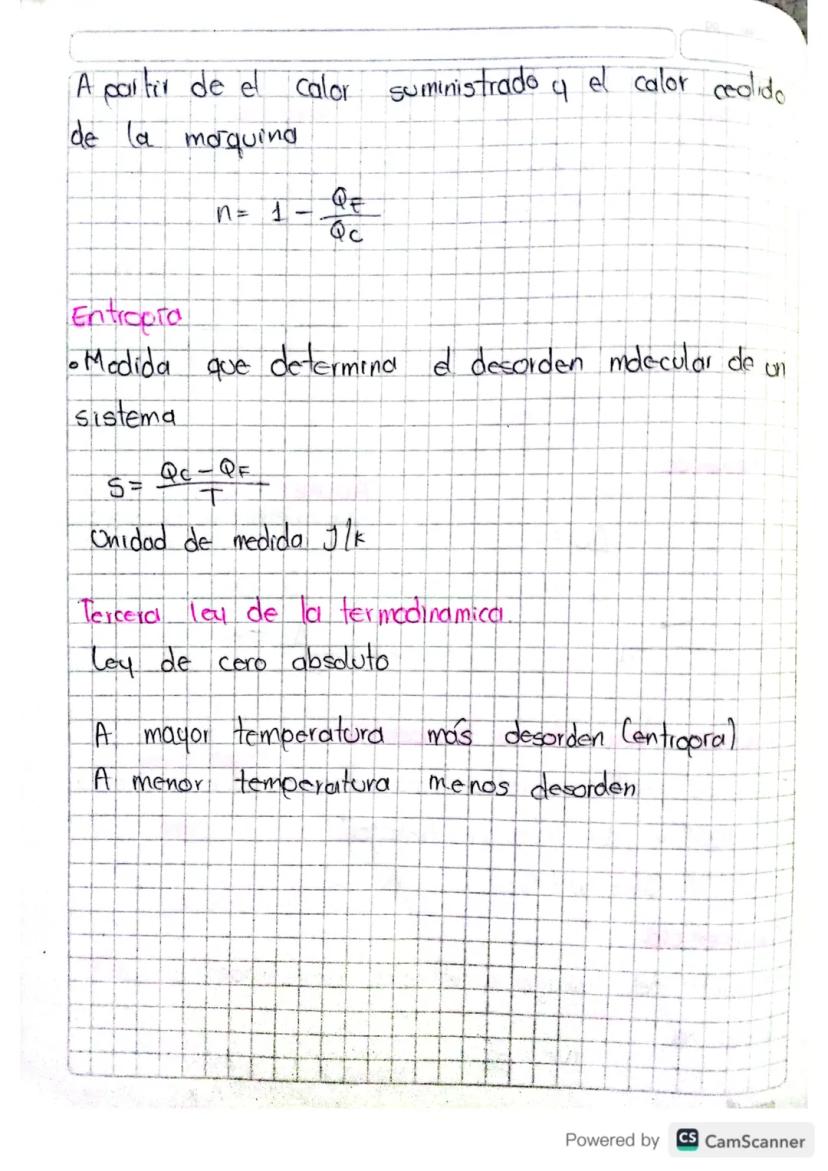 A partir de el calor suministrado y el calor cedido
de la maquina
n = 1 - QF/QC
Entropía
• Medida que determina el desorden molecular de un
sistema
S = QC - QF / T
Unidad de medida J/k
Tercera ley de la termodinamica.
Ley de cero absoluto
A mayor temperatura más desorden (entropía)
A menor temperatura menos desorden
Powered by CS CamScanner